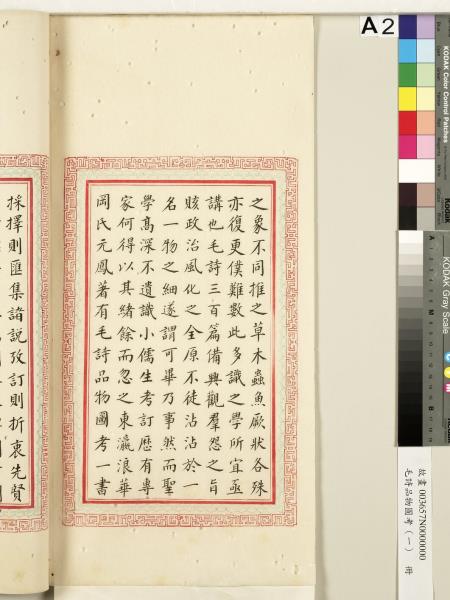 之象不同推之草木蟲魚厥狀各殊
亦復更僕難數此多識之學所宜亟
講也毛詩三百篇備興觀羣怨之旨
賅政治風化之全原不徒沾沾於一
名一物之細遂謂可畢乃事然而聖
學高深不遺識小儒生考訂歷有專
家何得以其緒餘而忽之東瀛浪華
岡氏元鳳著有毛詩品物圖考一書
採擇則匯集諸說攷訂則折衷先賢
A2
KODAK Color Control Patches
KODAK Gray Scale
故畫 003657N0000000
毛詩品物圖考（一） 冊